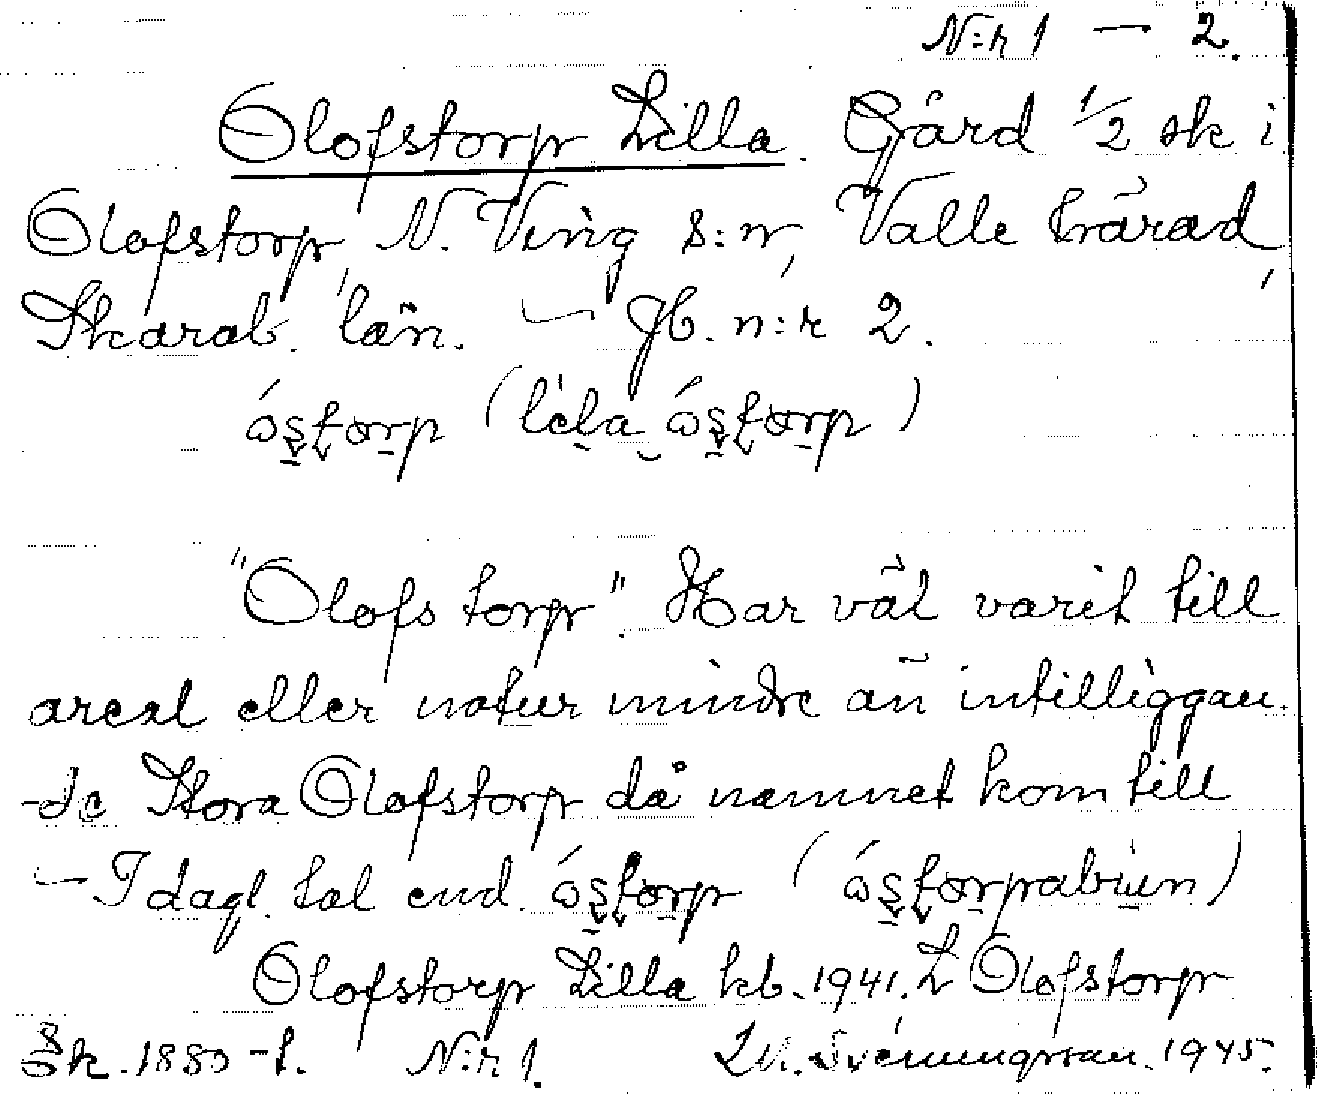 N:r 1 — 2.
Olofstorp Lilla. Gård 1/2 sk i
Olofstorp, N. Ving s:n, Valle härad,
Skarab. län. — Jb. n:r 2.
"Olofs torp". Har väl varit till
areal eller natur mindre än intilliggan-
-de Stora Olofstorp då namnet kom till
— I dagl. tal end.
Olofstorp Lilla kb. 1941. L Olofstorp
Sk. 1880-t. N:r 1. Lm. Svenningsson. 1945.